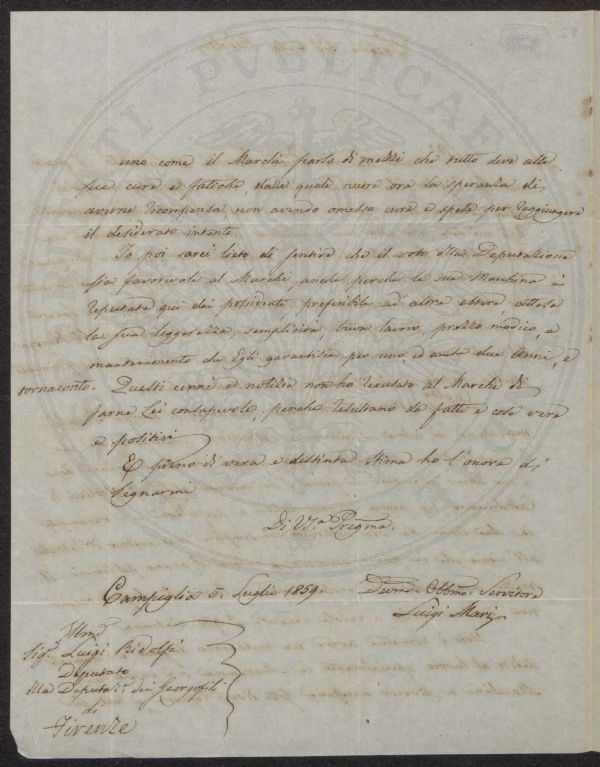 uno come il Marchi parlo di mezzi che tutto deve alle
sue cure e fatiche, dalle quali nutre ora la speranza di
averne ricompensa, non avendo omesso cure e spese per raggiungere
il desiderato intento
Io poi sarei lieto di sentire che il voto della Deputazione
sia favorevole al Marchi anche perche la sua Macchina è
reputata qui dai possidenti, preferibile ad altre estere, attesa
la sua leggerezza, semplicità, buon lavoro, prezzo modico, e
mantenimento che Egli garantisce per uno, ed anche due Anni, e
tornaconto. Questi cenni e notizie non ho recusato al Marchi di
farne Lei consapevole, perche resultano da fatti e cose vere
e positivi
E pieno di vera e distinta stima ho l'onore di
segnarmi
Di VS.a Pregma.
Campiglia 5. Luglio 1859.
Devmo. Obbmo. Servitore
Luigi Mari
Illmo
Sig. Luigi Ridolfi
Deputato
della Deputaz. dei Georgofili
di
Firenze
PVBLICAE